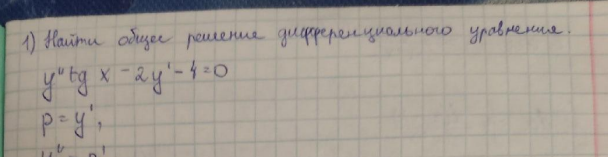 1) Найти общее решение дифференциального уравнения.
y'' tg x - 2y' - 4 = 0
p = y',